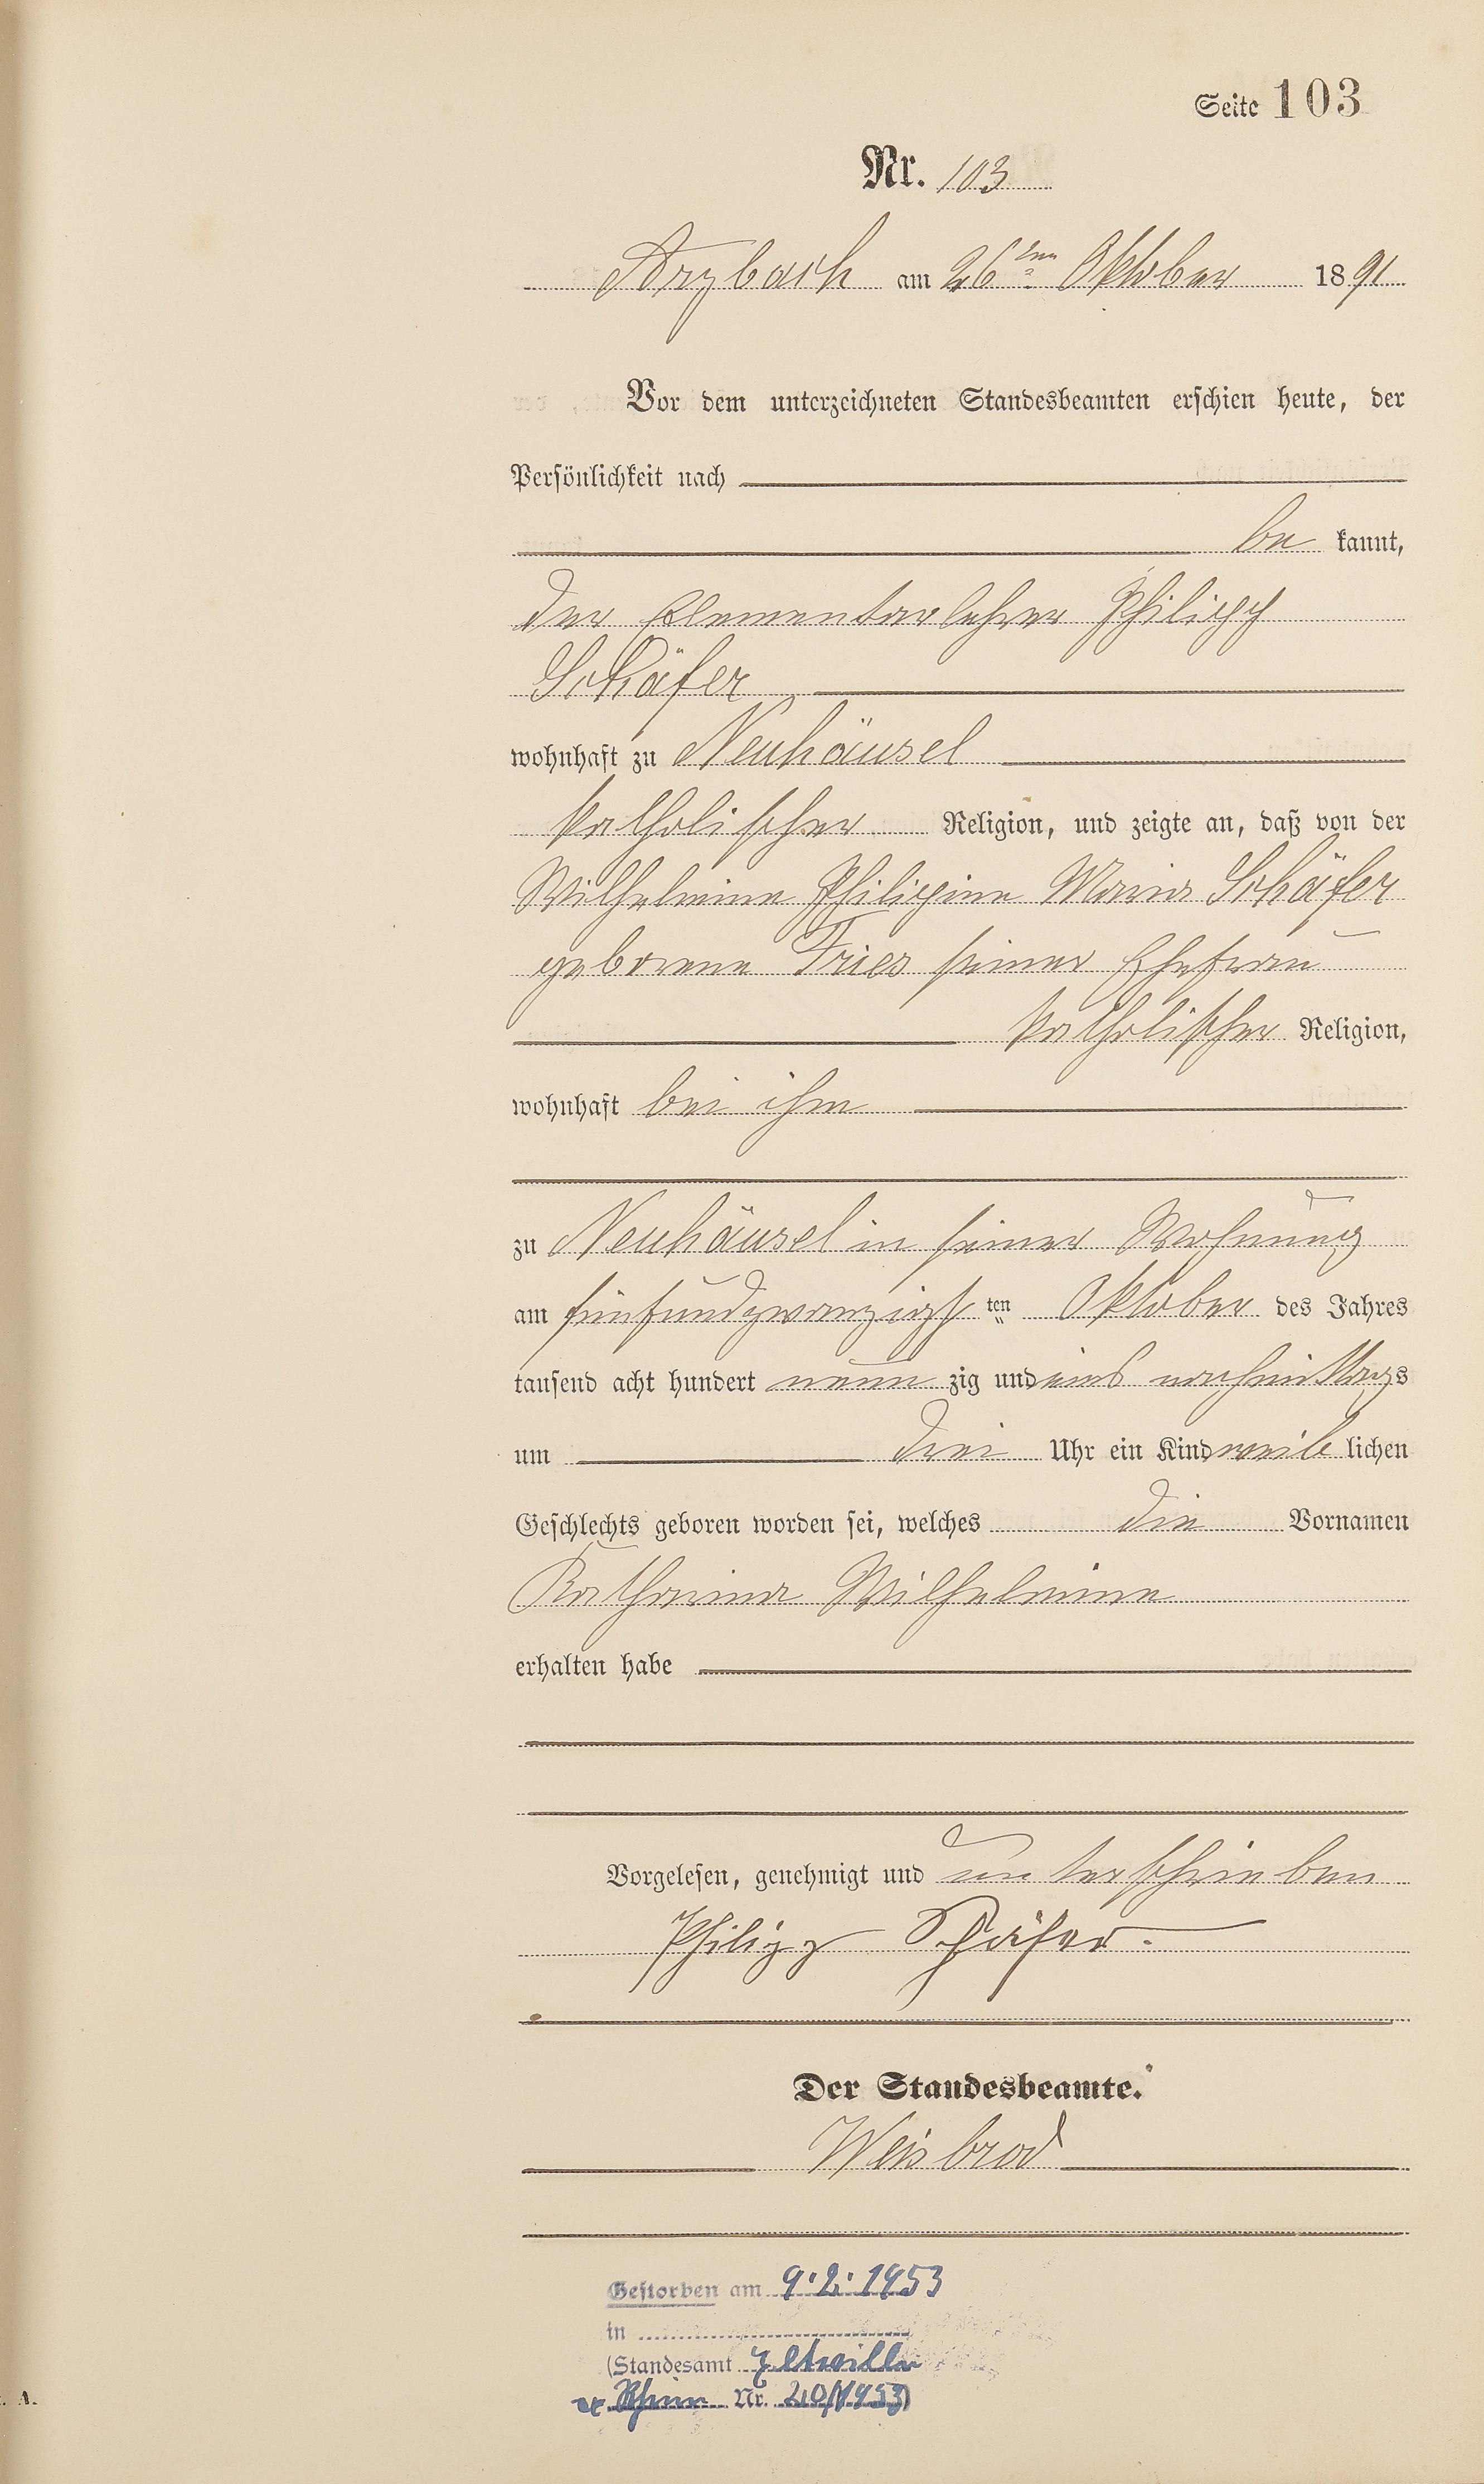 Seite 103
Nr. 103
Arzbach am 26ten Oktober 1891
Vor dem unterzeichneten Standesbeamten erschien heute, der
Persönlichkeit nach
be kannt,
der Elementarlehrer Philipp
Schäfer
wohnhaft zu Neuhäusel
katholischer Religion, und zeigte an, daß von der
Wilhelmine Philippine Maria Schäfer
geborene Fries seiner Ehefrau
katholischer Religion,
wohnhaft bei ihm
zu Neuhäusel in seiner Wohnung
am fünfundzwanzigsten Oktober des Jahres
tausend acht hundert neun zig und eins nachmittags
um drei Uhr ein Kind weib lichen
Geschlechts geboren worden sei, welches die Vornamen
Katharina Wilhelmine
erhalten habe
Vorgelesen, genehmigt und unterschrieben
Philipp Schäfer.
Der Standesbeamte.
Weisbrod
Gestorben am 9.2.1953
in
(Standesamt Eltville
a. Rhein Nr. 20/1953)
A.